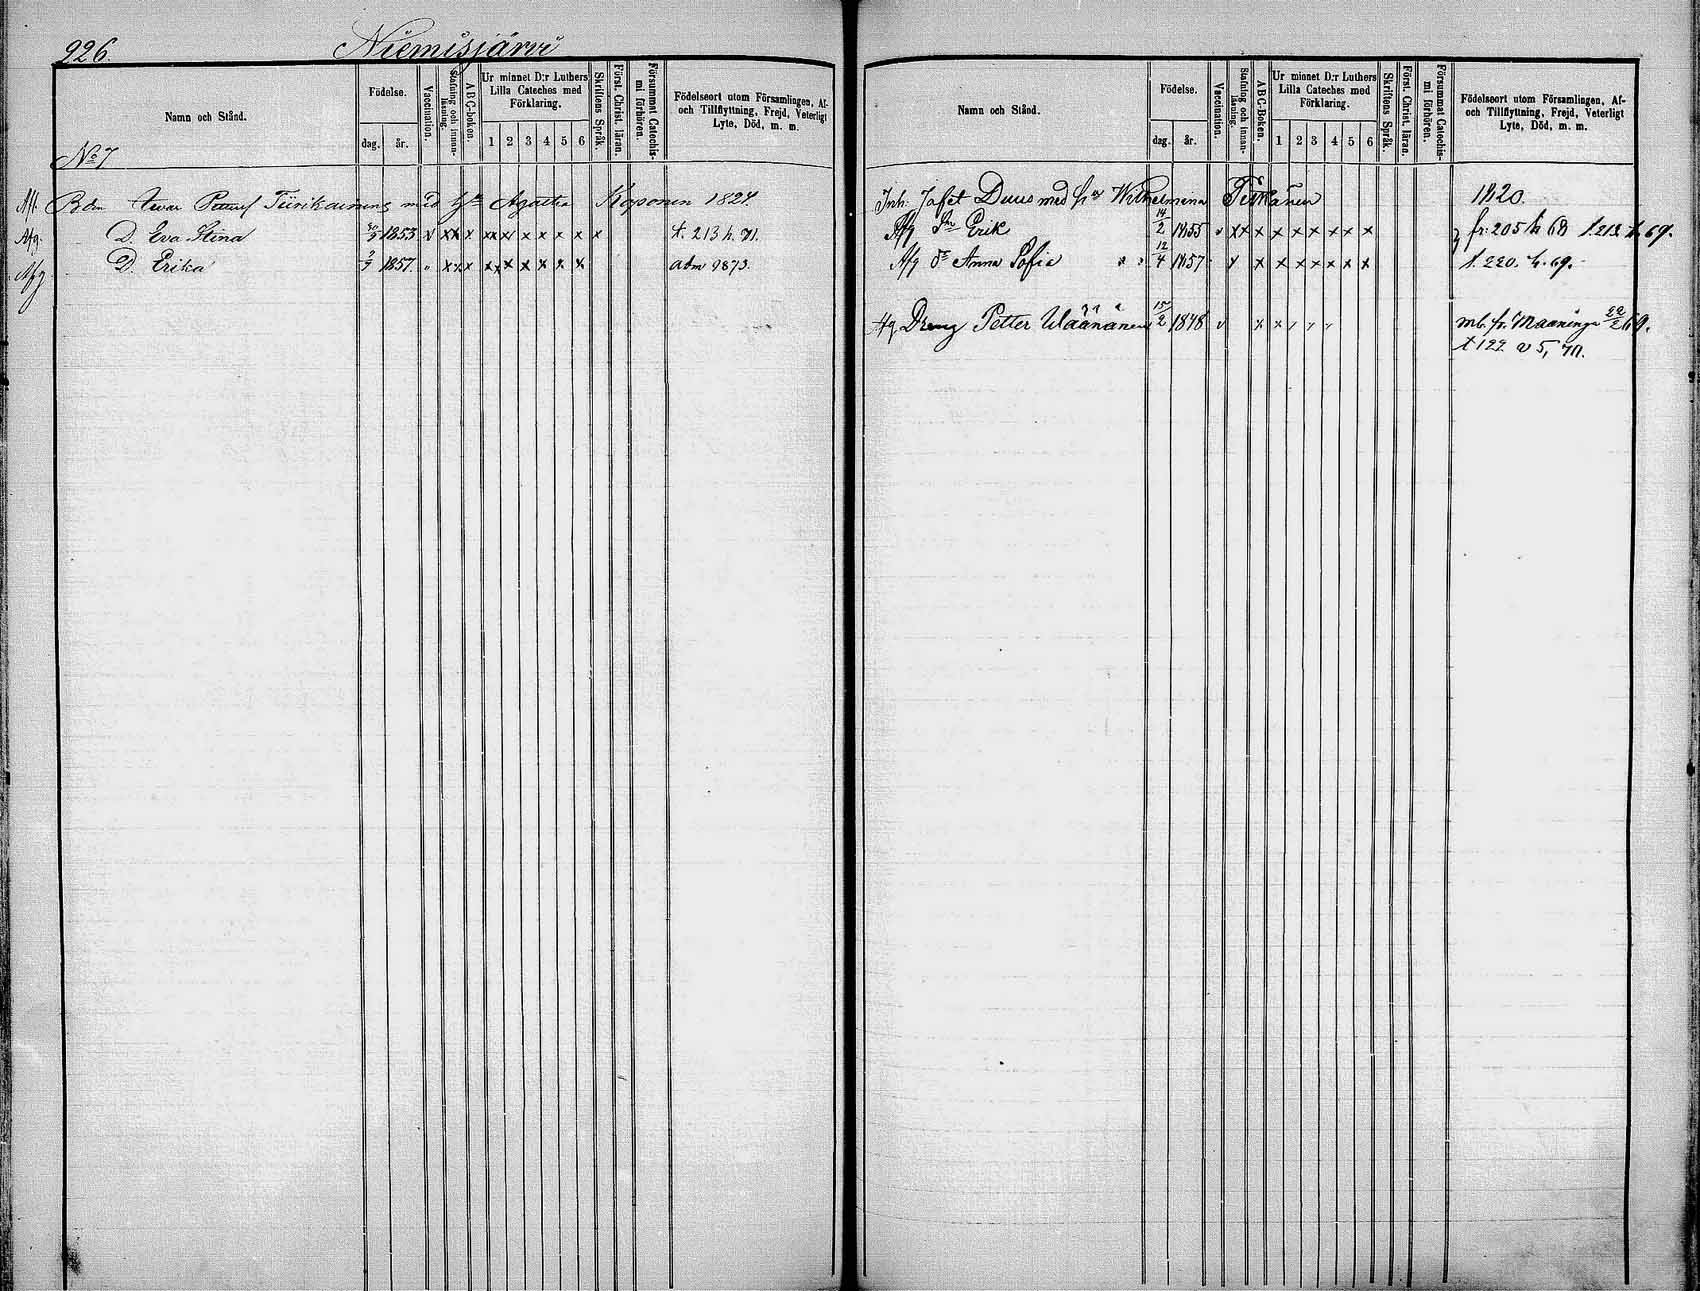 926. Niemisjärvi
Namn och Stånd.
Födelse.
dag. år.
Vaccination.
Stafning och innan-läsning.
A B C-boken.
Ur minnet D:r Luthers Lilla Cateches med Förklaring.
1 2 3 4 5 6
Skriftens Språk.
Först. Christ. läran.
Försummat Catechis-mi förhören.
Födelseort utom Församlingen, Af- och Tillflyttning, Frejd, Veterligt Lyte, Död, m. m.
No 7
Bdm Petter Tiirikainens med Agatha Koponen 1824.
Afg. D. Eva Stina 1853 v x x x x x v x x x x x t. 213 h. 71.
Afg D. Erika 1857 " x x x x x x x x x x adm 1873.
Namn och Stånd.
Födelse.
dag. år.
Vaccination.
Stafning och innan-läsning.
A B C-Boken.
Ur minnet D:r Luthers Lilla Cateches med Förklaring.
1 2 3 4 5 6
Skriftens Språk.
Först. Christ. läran.
Försummat Catechis-mi förhören.
Födelseort utom Församlingen, Af- och Tillflyttning, Frejd, Veterligt Lyte, Död, m. m.
Inh. Jafet Duus med Wilhelmina 1820.
Afg Sn Erik 14/2 1855 v x x x x x x x x x fr. 205 h 68 t. 213 h. 69.
Afg Dr Anna Sofia 12/4 1857 x x x x x x x x t. 220. h. 69.
Afg. Dreng Petter Wäänänen 15/2 1848 v x x mb. fr. Maaninga 22/2 69.
t 122 v 5, 70.